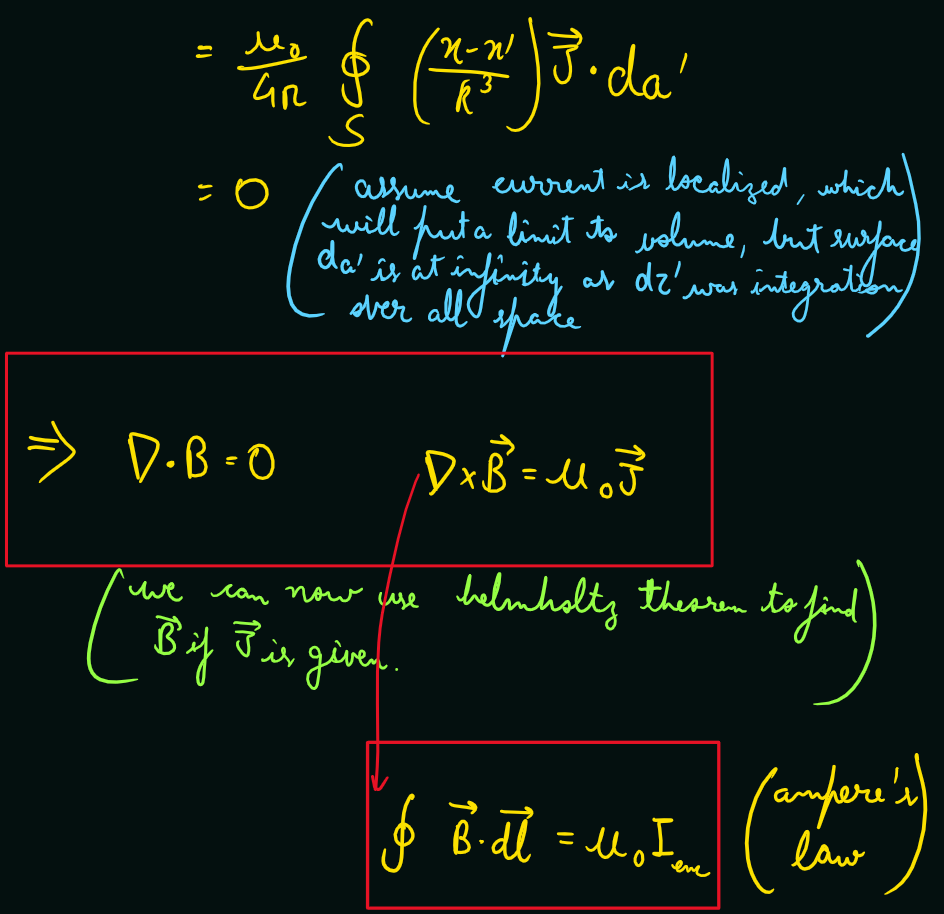 = μ₀/4π ∮_S ((x-x')/r³) J⃗ · da'
= 0 (assume current is localized, which
will put a limit to volume, but surface
da' is at infinity as dτ' was integration
over all space)
⇒ ∇·B = 0 ∇×B⃗ = μ₀J⃗
(we can now use helmholtz theorem to find
B⃗ if J⃗ is given.)
∮ B⃗·dl⃗ = μ₀I_enc (ampere's
law)